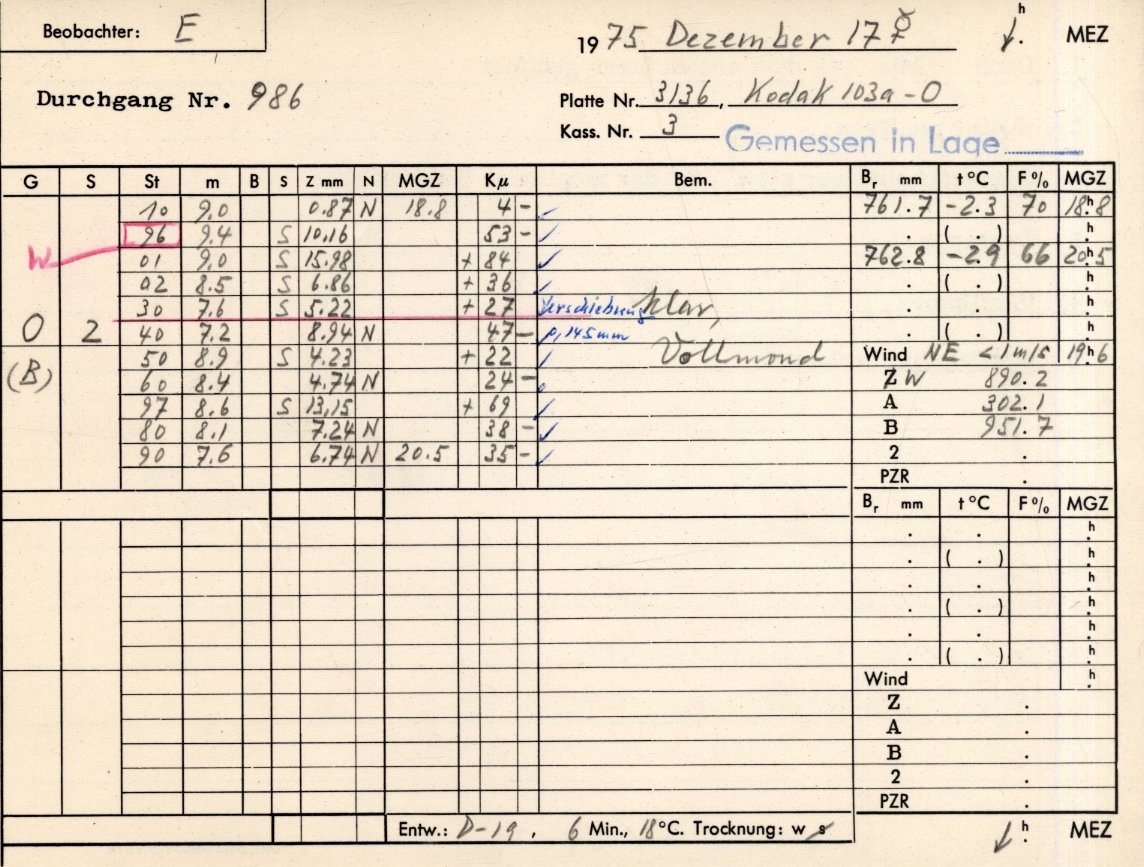 Beobachter: E
1975 Dezember 17 ☿ h . MEZ
Durchgang Nr. 986
Platte Nr. 3136, Kodak 103a-O
Kass. Nr. 3 Gemessen in Lage
G S St m B S Z mm N MGZ Kμ Bem. Br mm t °C F% MGZ
10 9.0 0.87 N 18.8 4 - 761.7 -2.3 70 18h8
96 9.4 S 10.16 53 - . ( . ) h
W 01 9.0 S 15.98 + 84 762.8 -2.9 66 20h5
02 8.5 S 6.86 + 36 . ( . ) h
30 7.6 S 5.22 + 27 Verschiebung klar, . . h
O 2 40 7.2 8.94 N 47 - 0,145mm . ( . ) h
(B) 50 8.9 S 4.23 + 22 Vollmond Wind NE <1m/s 19h6
60 8.4 4.74 N 24 - Z W 890.2
97 8.6 S 13,15 + 69 A 302.1
80 8.1 7.24 N 38 - B 951.7
90 7.6 6.74 N 20.5 35 - 2 .
PZR .
Br mm t °C F% MGZ
. . h
. ( . ) h
. . h
. ( . ) h
. . h
. ( . ) h
Wind h
Z .
A .
B .
2 .
PZR .
Entw.: D-19, 6 Min., 18°C. Trocknung: w s h . MEZ